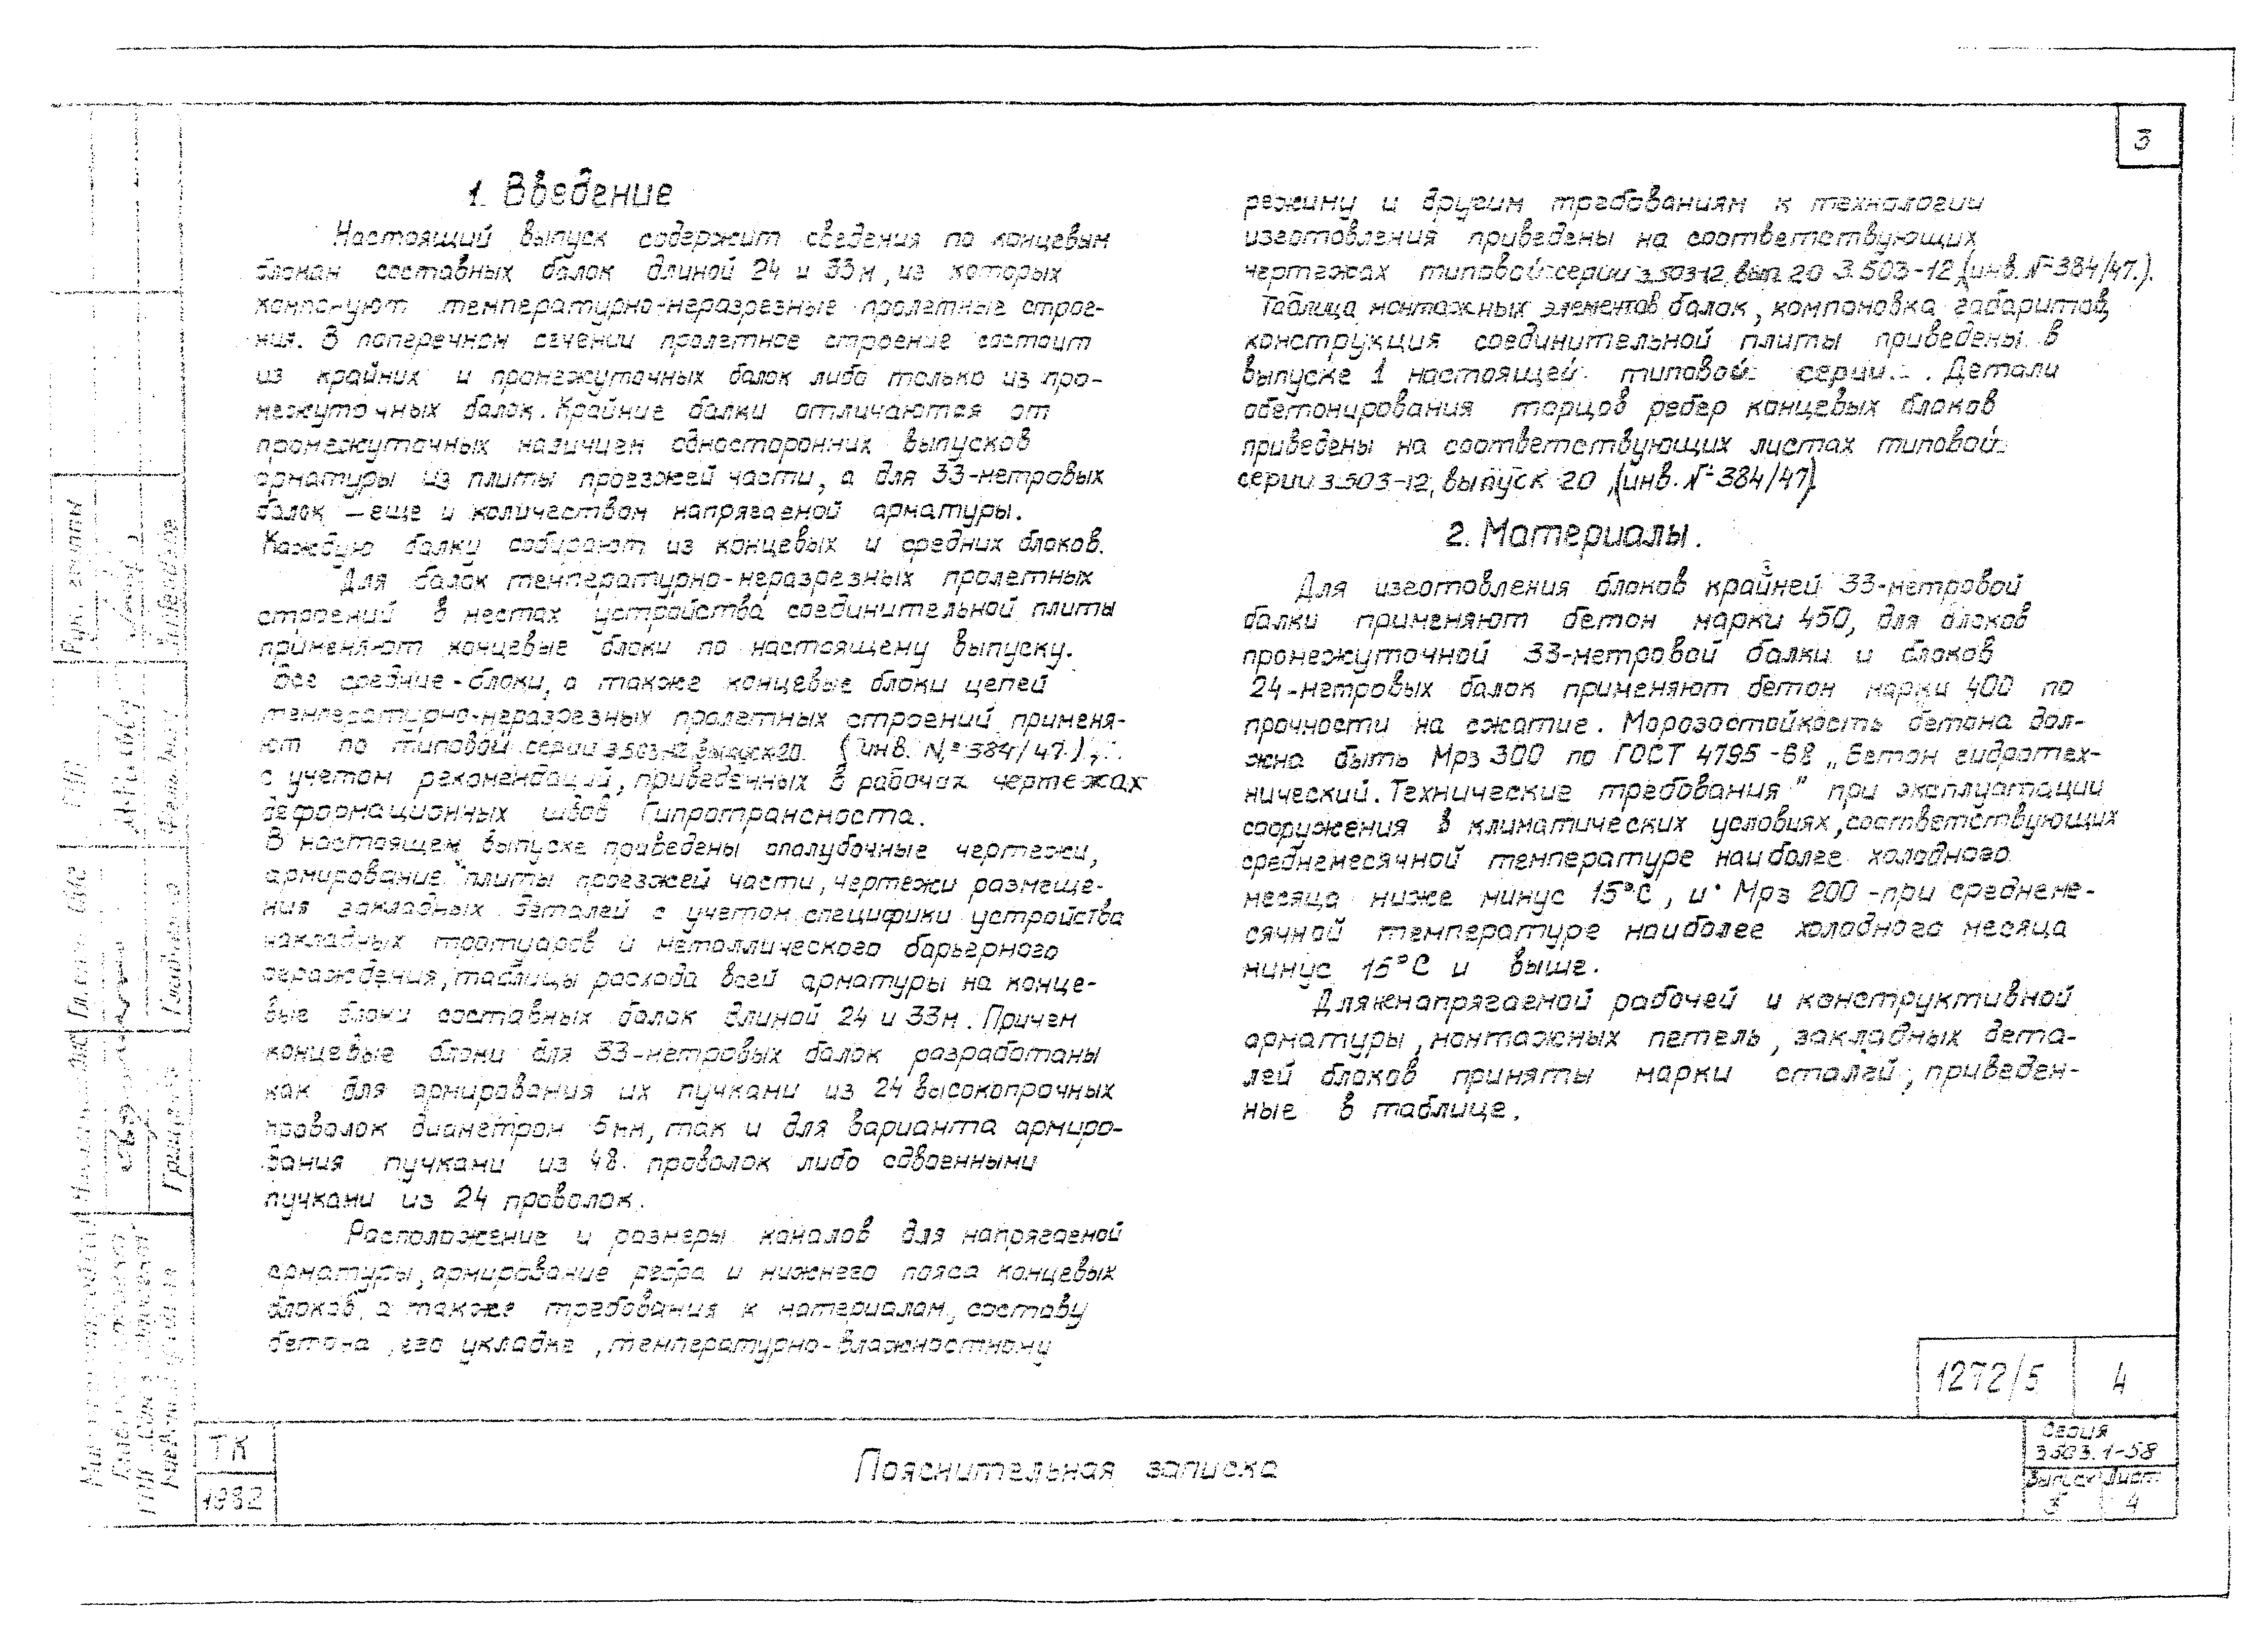 3
1. Введение
Настоящий выпуск содержит сведения по концевым
блокам составных балок длиной 24 и 33м, из которых
компонуют температурно-неразрезные пролетные строе-
ния. В поперечном сечении пролетное строение состоит
из крайних и промежуточных балок либо только из про-
межуточных балок. Крайние балки отличаются от
промежуточных наличием односторонних выпусков
арматуры из плиты проезжей части, а для 33-метровых
балок — еще и количеством напрягаемой арматуры.
Каждую балку собирают из концевых и средних блоков.
Для балок температурно-неразрезных пролетных
строений в местах устройства соединительной плиты
применяют концевые блоки по настоящему выпуску.
Все средние блоки, а также концевые блоки цепей
температурно-неразрезных пролетных строений применя-
ют по типовой серии 3.503-12 выпуск 20 (инв. №384/47),
с учетом рекомендаций, приведенных в рабочих чертежах
деформационных швов Гипротрансмоста.
В настоящем выпуске приведены опалубочные чертежи,
армирование плиты проезжей части, чертежи размеще-
ния закладных деталей с учетом специфики устройства
накладных тротуаров и металлического барьерного
ограждения, таблицы расхода всей арматуры на конце-
вые блоки составных балок длиной 24 и 33м. Причем
концевые блоки для 33-метровых балок разработаны
как для армирования их пучками из 24 высокопрочных
проволок диаметром 5мм, так и для варианта армиро-
вания пучками из 48 проволок либо сдвоенными
пучками из 24 проволок.
Расположение и размеры каналов для напрягаемой
арматуры, армирование ребра и нижнего пояса концевых
блоков, а также требования к материалам, составу
бетона, его укладке, температурно-влажностному
режиму и другим требованиям к технологии
изготовления приведены на соответствующих
чертежах типовой серии 3.503-12, вып. 20 3.503-12 (инв. №384/47.).
Таблица монтажных элементов балок, компановка габаритов,
конструкция соединительной плиты приведены в
выпуске 1 настоящей типовой серии. Детали
обетонирования торцов ребер концевых блоков
приведены на соответствующих листах типовой
серии 3.503-12, выпуск 20, (инв. №384/47)
2. Материалы.
Для изготовления блоков крайней 33-метровой
балки применяют бетон марки 450, для блоков
промежуточной 33-метровой балки и блоков
24-метровых балок применяют бетон марки 400 по
прочности на сжатие. Морозостойкость бетона дол-
жна быть Мрз 300 по ГОСТ 4795-68 „Бетон гидротех-
нический. Технические требования" при эксплуатации
сооружения в климатических условиях, соответствующих
среднемесячной температуре наиболее холодного
месяца ниже минус 15°С, и Мрз 200 - при среднеме-
сячной температуре наиболее холодного месяца
минус 15°С и выше.
Для ненапрягаемой рабочей и конструктивной
арматуры, монтажных петель, закладных дета-
лей блоков приняты марки сталей, приведен-
ные в таблице.
1272/5 4
ТК
1982
Пояснительная записка
Серия
3.503.1-58
Выпуск Лист
3 4
Рук. группы
ГИП